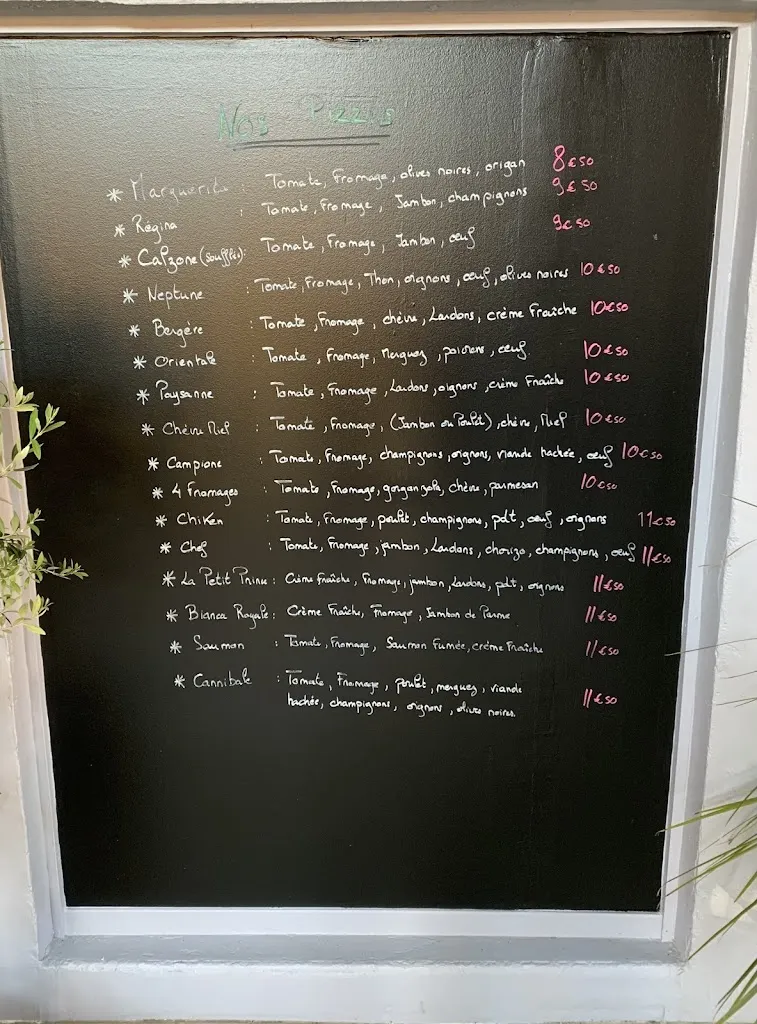 Nos Pizzis
* Marguerita : Tomate, Fromage, olives noires, origan 8€50
* Régina : Tomate, Fromage, Jambon, champignons 9€50
* Calzone (soufflée): Tomate, Fromage, Jambon, œuf 9€50
* Neptune : Tomate, Fromage, Thon, oignons, œuf, olives noires 10€50
* Bergère : Tomate, Fromage, chèvre, Lardons, crème Fraîche 10€50
* Orientale : Tomate, Fromage, Merguez, poivrons, œuf 10€50
* Paysanne : Tomate, Fromage, Lardons, oignons, crème Fraîche 10€50
* Chèvre Miel : Tomate, Fromage, (Jambon ou Poulet), chèvre, Miel 10€50
* Campione : Tomate, Fromage, champignons, oignons, viande hachée, œuf 10€50
* 4 Fromages : Tomate, Fromage, gorgonzola, chèvre, parmesan 10€50
* Chiken : Tomate, Fromage, poulet, champignons, pdt, œuf, oignons 11€50
* Chef : Tomate, Fromage, jambon, Lardons, chorizo, champignons, œuf 11€50
* La Petit Prince : Crème fraîche, Fromage, jambon, lardons, pdt, oignons 11€50
* Bianca Royale : Crème Fraîche, Fromage, Jambon de Parme 11€50
* Saumon : Tomate, Fromage, Saumon Fumée, crème Fraîche 11€50
* Cannibale : Tomate, Fromage, poulet, merguez, viande
hachée, champignons, oignons, olives noires. 11€50